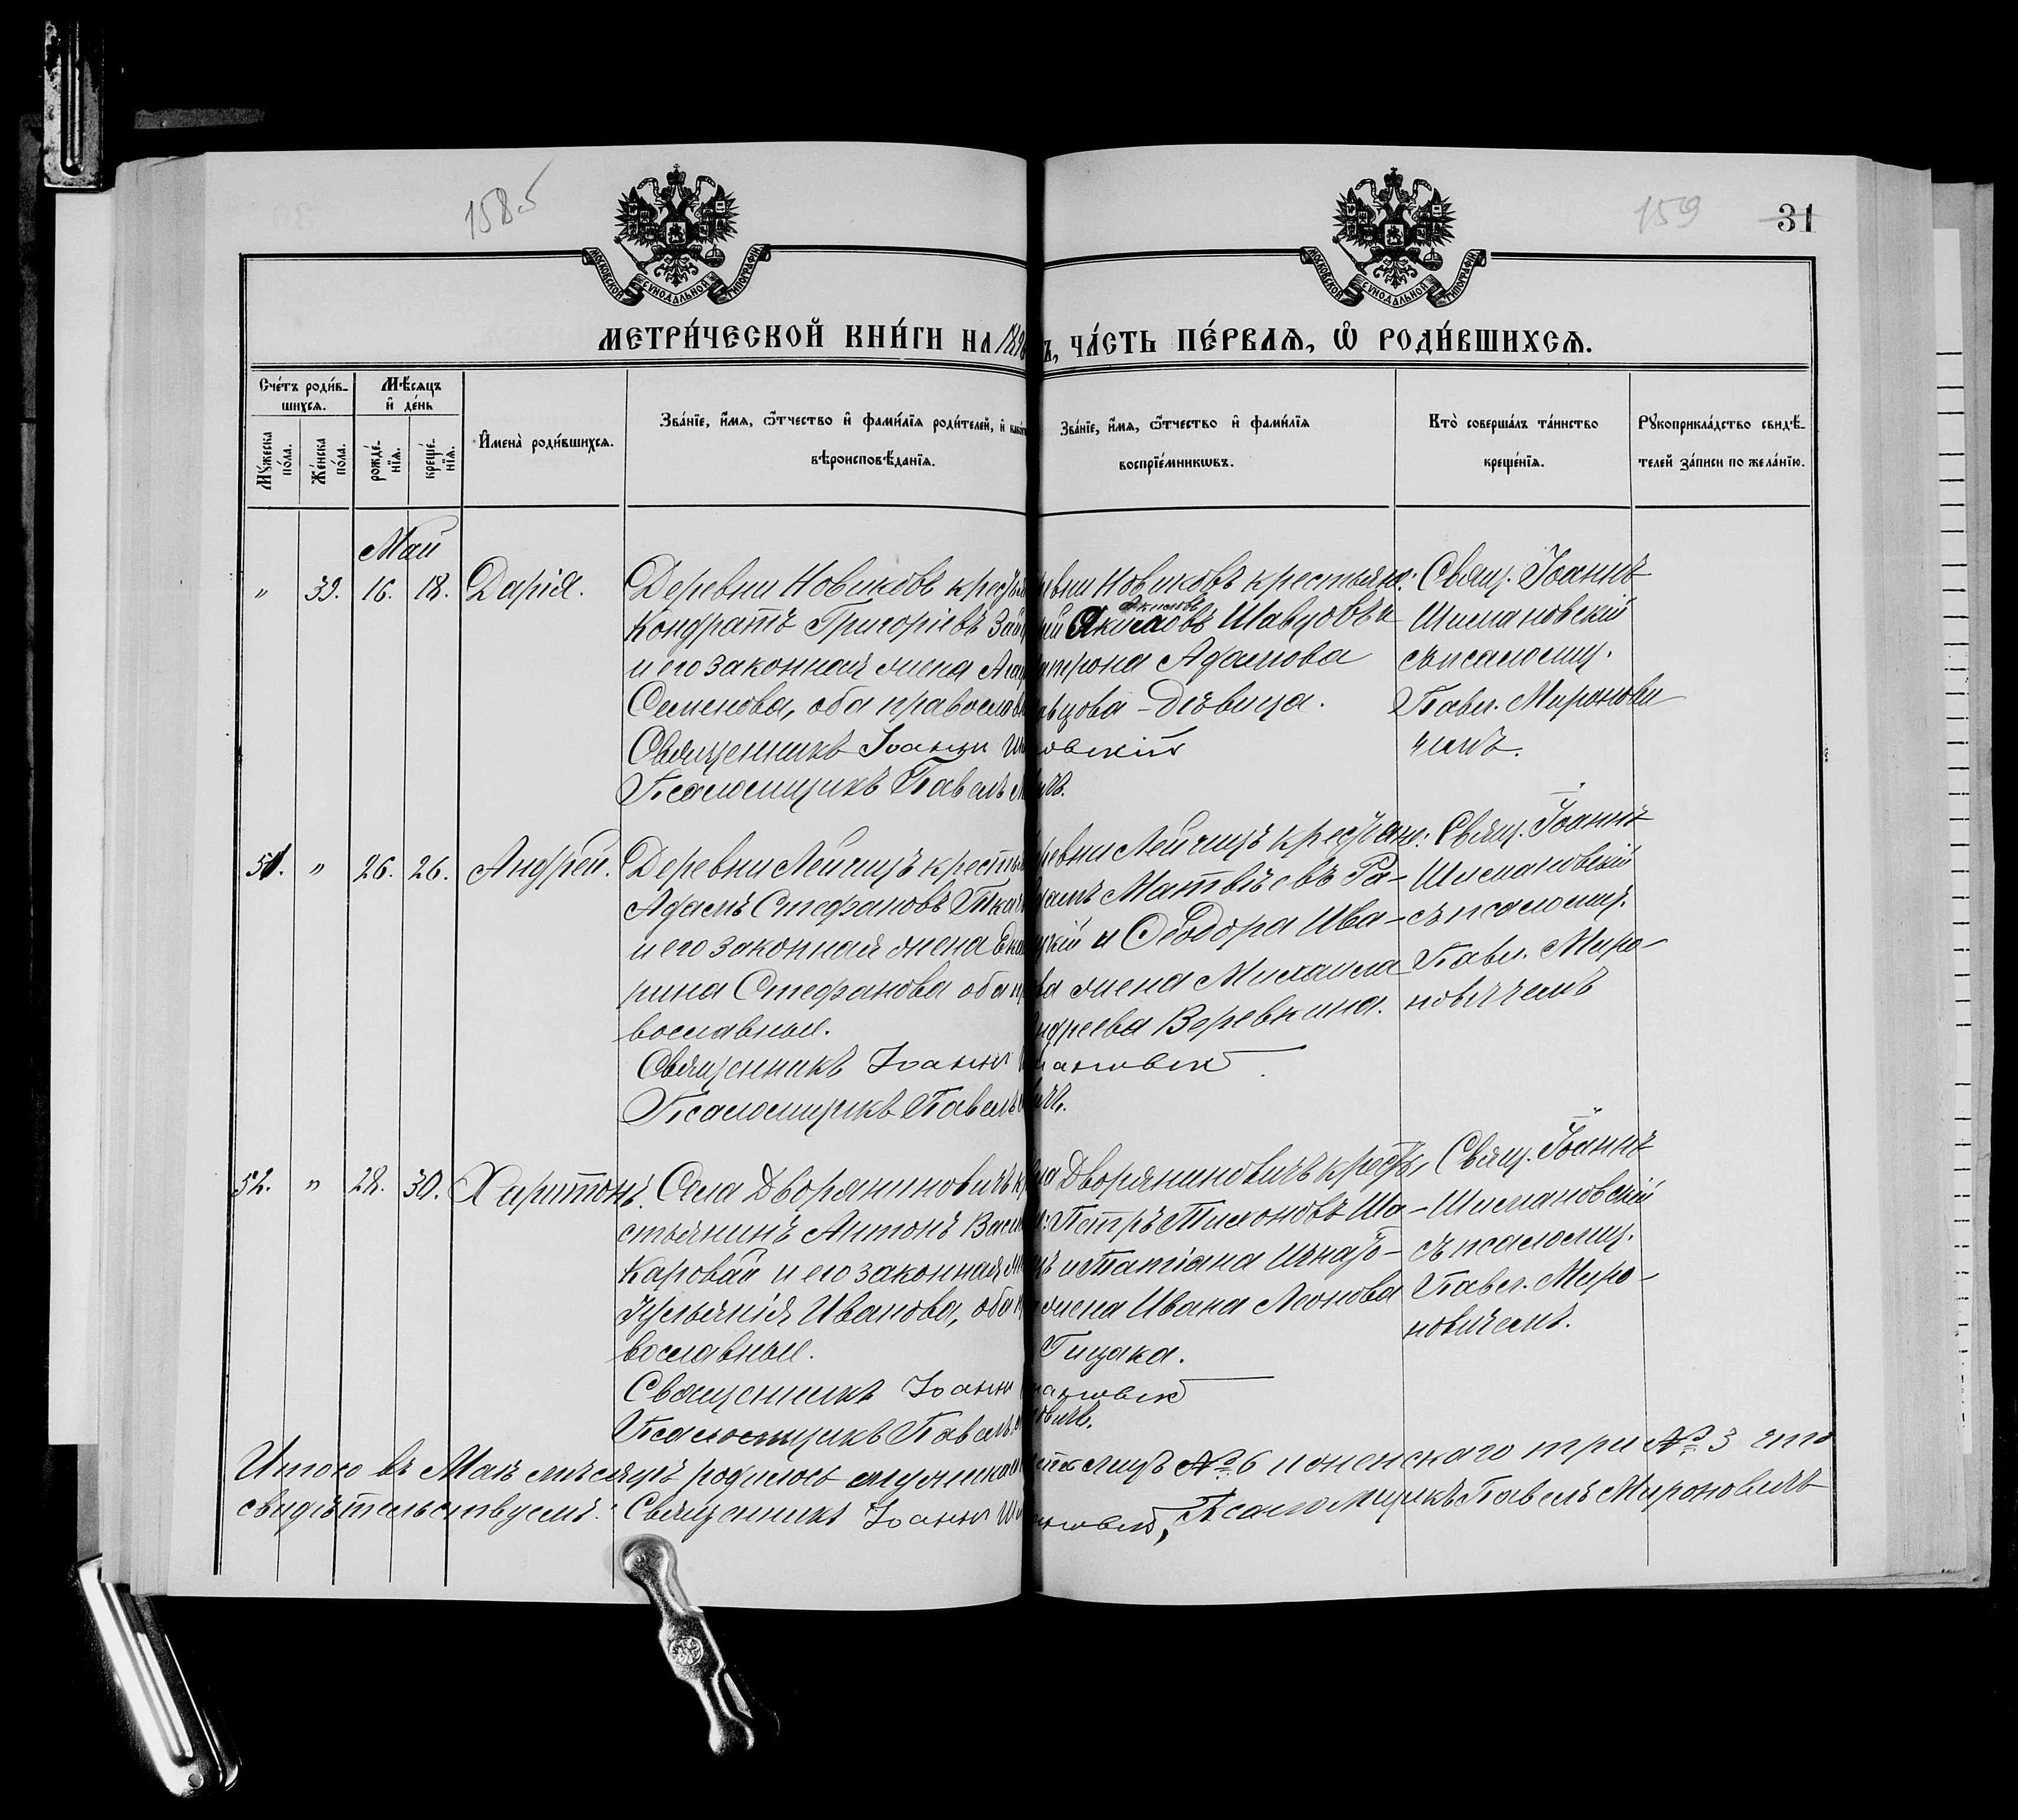 158об
159
31
МОСКОВСКОЙ СѴНОДАЛЬНОЙ ТИПОГРАФІИ
МОСКОВСКОЙ СѴНОДАЛЬНОЙ ТИПОГРАФІИ
МЕТРИ́ЧЕСКОЙ КНИ́ГИ НА 189 Ъ, ЧА́СТЬ ПЕ́РВАѦ, Ѽ РОДИ́ВШИХСѦ.
Сче́тъ роди́в-
шихсѧ.
Мѣ́сѧцъ
и҆ де́нь
Мꙋ́жеска
по́ла.
Же́нска
по́ла.
рожде́-
нїѧ.
креще́-
нїѧ.
И҆мена̀ роди́вшихсѧ.
Зва́нїе, и҆́мѧ, ѻ҆́тчество и҆ фами́лїѧ роди́телей, и҆
вѣроисповѣ́данїѧ.
Зва́нїе, и҆́мѧ, ѻ҆́тчество и҆ фами́лїѧ
воспрїе́мникѡвъ.
Кто̀ соверша́лъ та́инство
креще́нїѧ.
Рꙋкоприкла́дство свидѣ́-
телей за́писи по жела́нїю.
Май
" 39. 16. 18. Дарія.
Деревни Новиковъ крестья
Кондратъ Григоріевъ Зай
и его законная жена Ага
Семенова, оба православ
Священникъ Іоаннъ Ши
Псаломщикъ Павелъ М
евни Новиковъ крестьян:
Якимовъ
Шавцовъ и
атрона Адамова
авцова - Дѣвица.
овскій
ичъ.
Свящ. Іоаннъ
Шимановскій
съ псаломщ.
Павл. Миронови
чемъ.
51. " 26. 26. Андрей.
Деревни Лейчицъ крестья
Адамъ Стефановъ Ткач
и его законная жена Ека
рина Стефанова оба пра
вославные.
Священникъ Іоаннъ
Псаломщикъ Павелъ
ревни Лейчицъ крестьян:
дамъ Матвѣевъ Ра-
цкій и Ѳеодора Ива-
ва жена Михаила
ндреева Веревкина.
мановск
ичъ.
Свящ. Іоаннъ
Шимановскій
съ псаломщ.
Павл. Миро-
новичемъ
52. " 28. 30. Харитонъ.
Села Дворяниновичъ кр
стьянинъ Антонъ Васил
Каровай и его законная же
Іульянія Иванова, оба пр
вославные.
Священникъ Іоаннъ
Псаломщикъ Павелъ
ла Дворяниновичъ крест
н: Петръ Тихоновъ Ша-
ъ и Татіана Игнать-
жена Ивана Леонова
Гицака.
мановск
овичъ.
Свящ. Іоаннъ
Шимановскій
съ псаломщ.
Павл. Миро-
новичемъ.
Итого въ Маѣ мѣсяцѣ родилось мужеска шесть № 6 и женскаго три № 3 что
свидѣтельствуемъ: Священникъ Іоаннъ Шимановск, Псаломщикъ Павелъ Мироновичъ